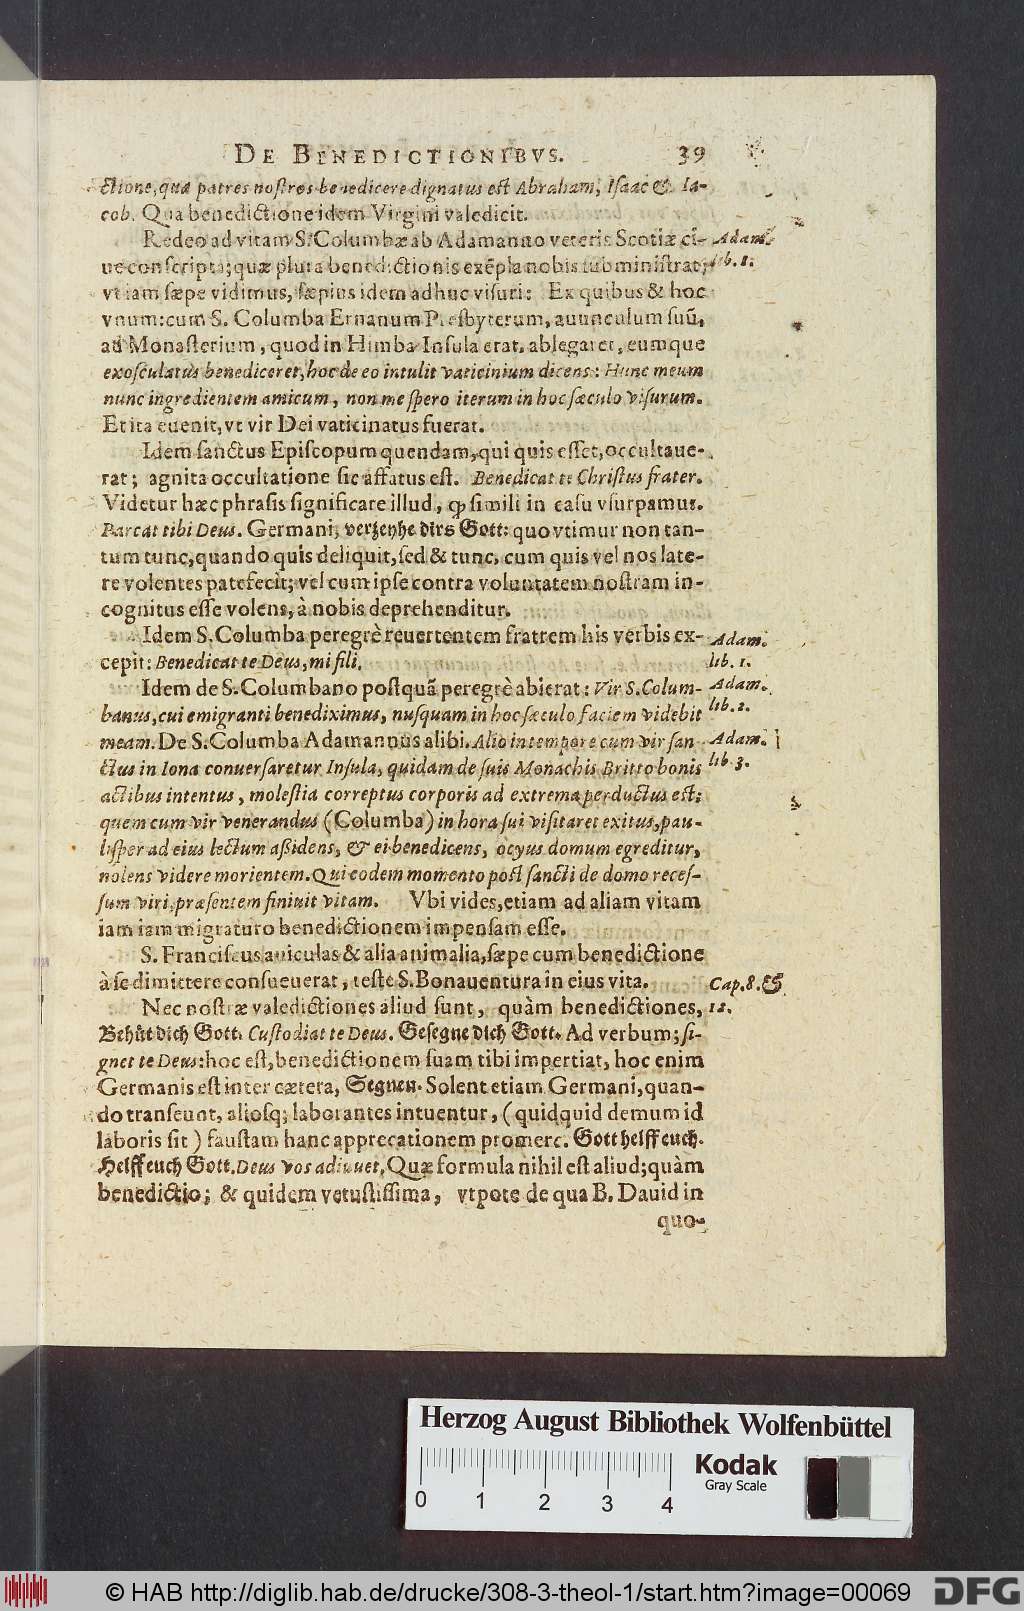 DE BENEDICTIONIBVS. 39
ctione, quæ patres nostros benedicere dignatus est Abraham, Isaac & Ia-
cob. Qua benedictione idem Virgini valedicit.
Redeo ad vitam S. Columbæ ab Adamanno veteris Scotiæ ci-
ue conscripta; quæ plura benedictionis exẽpla nobis subministrat;
vt iam sæpe vidimus, sæpius idem adhuc visuri: Ex quibus & hoc
vnum: cum S. Columba Ernanum Presbyterum, auunculum suũ,
ad Monasterium, quod in Himba Insula erat, ablegaret, eumque
exosculatus benediceret, hoc de eo intulit vaticinium dicens: Hunc meum
nunc ingredientem amicum, non me spero iterum in hoc sæculo visurum.
Et ita euenit, vt vir Dei vaticinatus fuerat.
Idem sanctus Episcopum quendam, qui quis esset, occultaue-
rat; agnita occultatione sic affatus est. Benedicat te Christus frater.
Videtur hæc phrasis significare illud, ꝙ simili in casu vsurpamus.
Parcat tibi Deus. Germani, verzeyhe dirs Gott: quo vtimur non tan-
tum tunc, quando quis deliquit, sed & tunc, cum quis vel nos late-
re volentes patefecit; vel cum ipse contra voluntatem nostram in-
cognitus esse volens, à nobis deprehenditur.
Idem S. Columba peregrè reuertentem fratrem his verbis ex-
cepit: Benedicat te Deus, mi fili.
Idem de S. Columbano postquã peregrè abierat: Vir S. Colum-
banus, cui emigranti benediximus, nusquam in hoc sæculo faciem videbit
meam. De S. Columba Adamannus alibi. Alio in tempore cum vir san-
ctus in Iona conuersaretur Insula, quidam de suis Monachis Britto bonis
actibus intentus, molestia correptus corporis ad extrema perductus est;
quem cum vir venerandus (Columba) in hora sui visitaret exitus, pau-
lisper ad eius lectum aßidens, & ei benedicens, ocyus domum egreditur,
nolens videre morientem. Qui eodem momento post sancti de domo reces-
sum viri, præsentem finiuit vitam. Vbi vides, etiam ad aliam vitam
iam iam migraturo benedictionem impensam esse.
S. Franciscus auiculas & alia animalia, sæpe cum benedictione
à se dimittere consueuerat, teste S. Bonauentura in eius vita.
Nec nostræ valedictiones aliud sunt, quàm benedictiones,
Behüt dich Gott. Custodiat te Deus. Gesegne dich Gott. Ad verbum; si-
gnet te Deus: hoc est, benedictionem suam tibi impertiat, hoc enim
Germanis est inter cætera, Segnen. Solent etiam Germani, quan-
do transeunt, aliosq; laborantes intuentur, (quidquid demum id
laboris sit) faustam hanc apprecationem promere. Gott helff euch.
Helff euch Gott. Deus vos adiuuet, Quæ formula nihil est aliud; quàm
benedictio; & quidem vetustissima, vtpote de qua B. Dauid in
quo-
Adam.
lib. 1.
Adam.
lib. 1.
Adam.
lib. 2.
Adam.
lib. 3.
Cap. 8. &
12.
Herzog August Bibliothek Wolfenbüttel
0 1 2 3 4
Kodak
Gray Scale
© HAB http://diglib.hab.de/drucke/308-3-theol-1/start.htm?image=00069
DFG